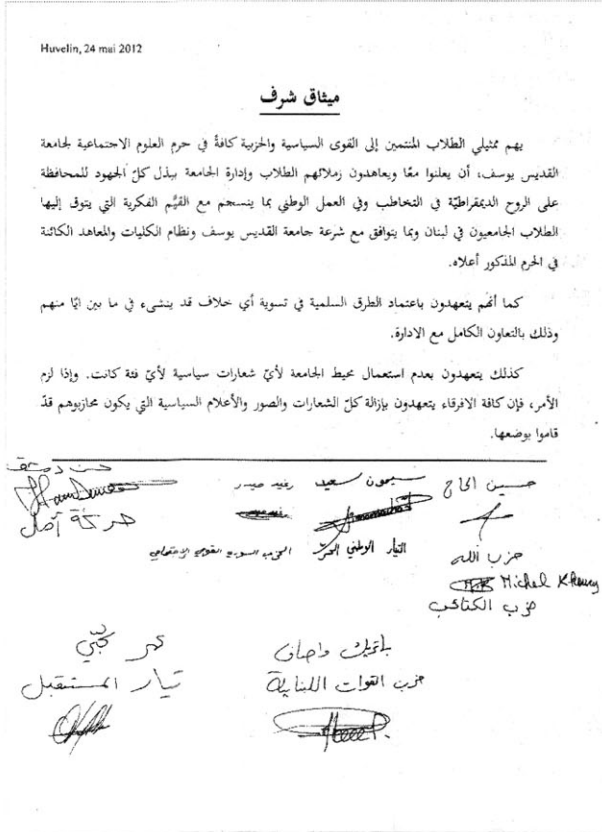 Huvelin, 24 mai 2012
ميثاق شرف
يهم ممثيلي الطلاب المنتمين إلى القوى السياسية والحزبية كافةً في حرم العلوم الاجتماعية لجامعة
القديس يوسف، أن يعلنوا معًا ويعاهدون زملائهم الطلاب وإدارة الجامعة ببذل كلّ الجهود للمحافظة
على الروح الديمقراطيّة في التخاطب وفي العمل الوطني بما ينسجم مع القيُم الفكرية التي يتوق إليها
الطلاب الجامعيون في لبنان وبما يتوافق مع شرعة جامعة القديس يوسف ونظام الكليات والمعاهد الكائنة
في الحرم المذكور أعلاه.
كما أنّهم يتعهدون باعتماد الطرق السلمية في تسوية أي خلاف قد ينشىء في ما بين ايًا منهم
وذلك بالتعاون الكامل مع الادارة.
كذلك يتعهدون بعدم استعمال محيط الجامعة لأيّ شعارات سياسية لأيّ فئة كانت. وإذا لزم
الأمر، فإن كافة الافرقاء يتعهدون بإزالة كلّ الشعارات والصور والأعلام السياسية التي يكون محازبوهم قدّ
قاموا بوضعها.
حسين الحاج سيمون سعيد رفيد حيدر حسن
حزب الله التيار الوطني الحرّ الحزب السوري القومي الإجتماعي حركة أمل
Michel Khoury
حزب الكتائب
باتريك عمر
حزب القوات اللبنانية تيار المستقبل